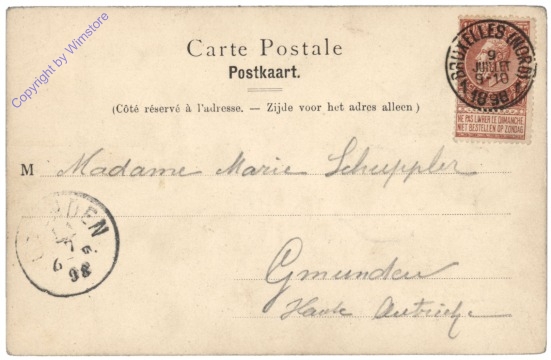 Copyright by Wimstore
Carte Postale
Postkaart.
(Côté réservé à l'adresse. — Zijde voor het adres alleen)
BRUXELLES (NORD)
9
JUILLET
9-10
1898
NE PAS LIVRER LE DIMANCHE
NIET BESTELLEN OP ZONDAG
M Madame Marie Schuppler
Gmunden
Haute Autriche
98